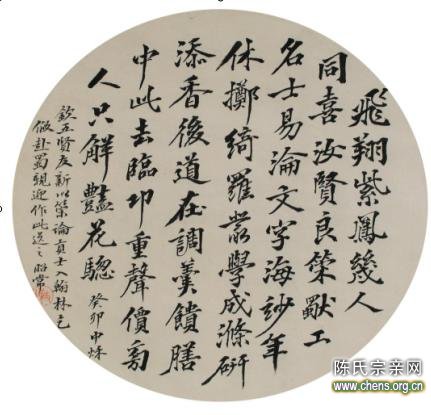 飛翔紫鳳幾人
同喜汝賢良策獻工
名士易淪文字海妙年
休擲綺羅叢學成滌研
添香後道在調羹饋膳
中此去臨卭重聲價旁
人只解豔花驄 癸卯中秌
欽五賢友新以策論貢士入翰林乞
假赴蜀親迎作此送之 昭常
陈氏宗亲网
www.chens.org.cn